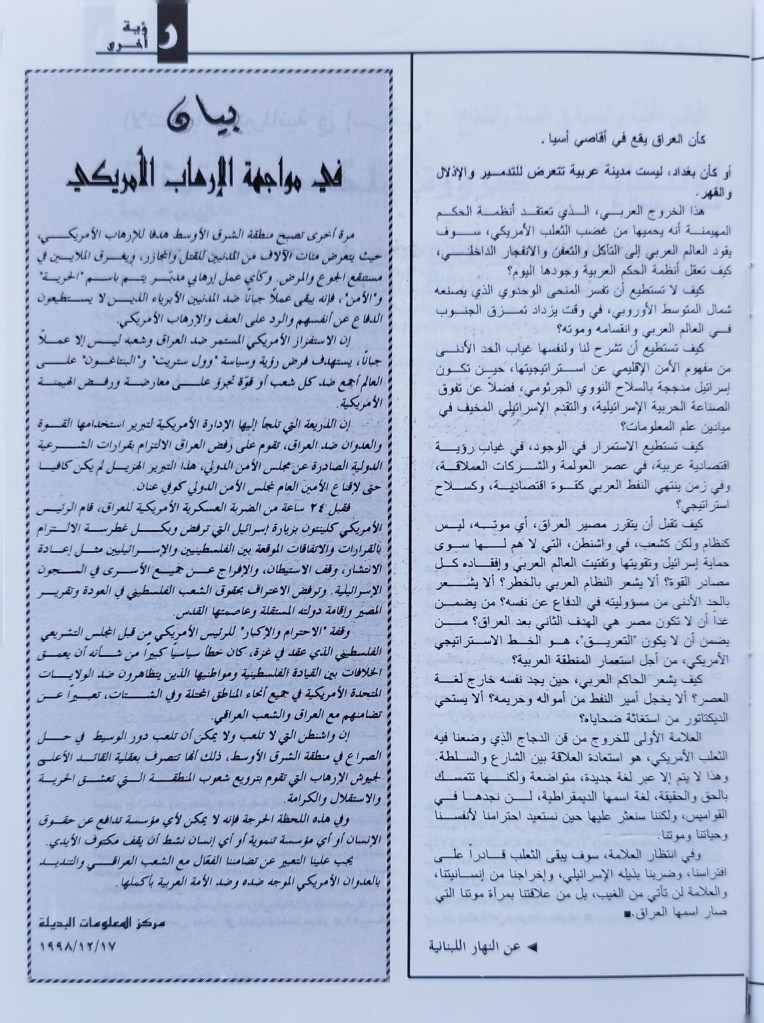 رؤية
أخرى
كأن العراق يقع في أقاصي أسيا .
أو كأن بغداد، ليست مدينة عربية تتعرض للتدمير والإذلال
والقهر.
هذا الخروج العربي، الذي تعتقد أنظمة الحكم
المهيمنة أنه يحميها من غضب الثعلب الأمريكي، سوف
يقود العالم العربي إلى التآكل والتعفن والانفجار الداخلي،
كيف تعقل أنظمة الحكم العربية وجودها اليوم؟
كيف لا تستطيع أن تفسر المنحى الوحدوي الذي يصنعه
شمال المتوسط الأوروبي، في وقت يزداد تمزق الجنوب
في العالم العربي وانقسامه وموته؟
كيف تستطيع أن تشرح لنا ولنفسها غياب الحد الأدنى
من مفهوم الأمن الإقليمي عن استراتيجيتها، حين تكون
إسرائيل مدججة بالسلاح النووي الجرثومي، فضلاً عن تفوق
الصناعة الحربية الإسرائيلية، والتقدم الإسرائيلي المخيف في
ميادين علم المعلومات؟
كيف تستطيع الاستمرار في الوجود، في غياب رؤية
اقتصادية عربية، في عصر العولمة والشركات العملاقة،
وفي زمن ينتهي النفط العربي كقوة اقتصادية، وكسلاح
استراتيجي؟
كيف تقبل أن يتقرر مصير العراق، أي موته، ليس
كنظام ولكن كشعب، في واشنطن، التي لا هم لها سوى
حماية إسرائيل وتقويتها وتفتيت العالم العربي وإفقاده كل
مصادر القوة؟ ألا يشعر النظام العربي بالخطر؟ ألا يشعر
بالحد الأدنى من مسؤوليته في الدفاع عن نفسه؟ من يضمن
غداً أن لا تكون مصر هي الهدف الثاني بعد العراق؟ من
يضمن أن لا يكون "التعريق"، هو الخط الاستراتيجي
الأمريكي، من أجل استعمار المنطقة العربية؟
كيف يشعر الحاكم العربي، حين يجد نفسه خارج لغة
العصر؟ ألا يخجل أمير النفط من أمواله وحريمه؟ ألا يستحي
الديكتاتور من استغاثة ضحاياه؟
العلامة الأولى للخروج من قن الدجاج الذي وضعنا فيه
الثعلب الأمريكي، هو استعادة العلاقة بين الشارع والسلطة.
وهذا لا يتم إلا عبر لغة جديدة، متواضعة ولكنها تتمسك
بالحق والحقيقة، لغة اسمها الديمقراطية، لن نجدها في
القواميس، ولكننا سنعثر عليها حين نستعيد احترامنا لأنفسنا
وحياتنا وموتنا.
وفي انتظار العلامة، سوف يبقى الثعلب قادراً على
افتراسنا، وضربنا بذيله الإسرائيلي، وإخراجنا من إنسانيتنا،
والعلامة لن تأتي من الغيب، بل من علاقتنا بمرآة موتنا التي
صار اسمها العراق.■
◄ عن النهار اللبنانية
بيان
في مواجهة الإرهاب الأمريكي
مرة أخرى تصبح منطقة الشرق الأوسط هدفا للإرهاب الأمريكي،
حيث يتعرض مئات الآلاف من المدنيين للقتل والمجازر، ويغرق الملايين في
مستنقع الجوع والمرض. وكأي عمل إرهابي مدبّر يتم باسم "الحرية"
و"الأمن"، فإنه يبقى عملاً جباناً ضد المدنيين الأبرياء الذين لا يستطيعون
الدفاع عن أنفسهم والرد على العنف والإرهاب الأمريكي.
إن الاستفزاز الأمريكي المستمر ضد العراق وشعبه ليس إلا عملاً
جباناً، يستهدف فرض رؤية وسياسة "وول ستريت" و"البنتاغون" على
العالم أجمع ضد كل شعب أو قوّة تجرؤ على معارضة ورفض الهيمنة
الأمريكية.
إن الذريعة التي تلجأ إليها الإدارة الأمريكية لتبرير استخدامها القوة
والعدوان ضد العراق، تقوم على رفض العراق الالتزام بقرارات الشرعية
الدولية الصادرة عن مجلس الأمن الدولي، هذا التبرير الهزيل لم يكن كافيا
حتى لإقناع الأمين العام لمجلس الأمن الدولي كوفي عنان.
فقبل ٢٤ ساعة من الضربة العسكرية الأمريكية للعراق، قام الرئيس
الأمريكي كلينتون بزيارة إسرائيل التي ترفض وبكل غطرسة الالتزام
بالقرارات والاتفاقات الموقعة بين الفلسطينيين والإسرائيليين مثل إعادة
الانتشار، وقف الاستيطان، والإفراج عن جميع الأسرى في السجون
الإسرائيلية. وترفض الاعتراف بحقوق الشعب الفلسطيني في العودة وتقرير
المصير وإقامة دولته المستقلة وعاصمتها القدس.
وقفة "الاحترام والإكبار" للرئيس الأمريكي من قبل المجلس التشريعي
الفلسطيني الذي عقد في غزة، كان خطأ سياسياً كبيراً من شأنه أن يعمق
الخلافات بين القيادة الفلسطينية ومواطنيها الذين يتظاهرون ضد الولايات
المتحدة الأمريكية في جميع أنحاء المناطق المحتلة وفي الشتات، تعبيراً عن
تضامنهم مع العراق والشعب العراقي.
إن واشنطن التي لا تلعب ولا يمكن أن تلعب دور الوسيط في حل
الصراع في منطقة الشرق الأوسط، ذلك أنها تتصرف بعقلية القائد الأعلى
لجيوش الإرهاب التي تقوم بترويع شعوب المنطقة التي تعشق الحرية
والاستقلال والكرامة.
وفي هذه اللحظة الحرجة فإنه لا يمكن لأي مؤسسة تدافع عن حقوق
الإنسان أو أي مؤسسة تنموية أو أي إنسان نشط أن يقف مكتوف الأيدي.
يجب علينا التعبير عن تضامننا الفعّال مع الشعب العراقي والتنديد
بالعدوان الأمريكي الموجه ضده وضد الأمة العربية بأكملها.
مركز المعلومات البديلة
١٩٩٨/١٢/١٧